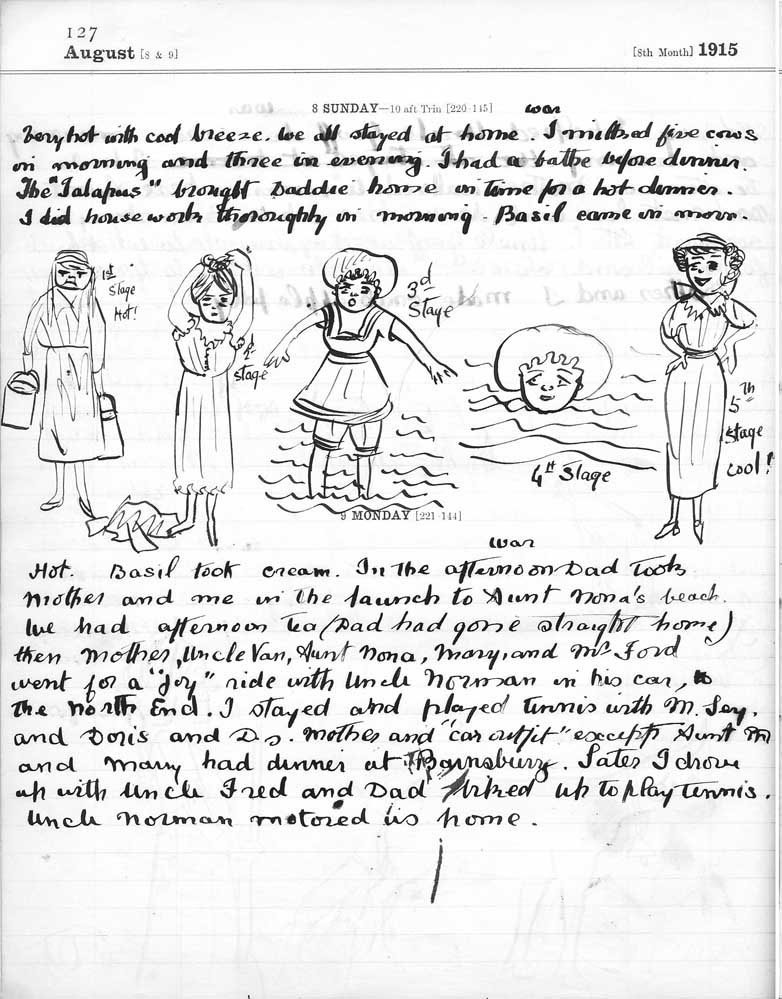 127
August [8 & 9] [8th Month] 1915
8 SUNDAY—10 aft Trin [220-145] war
Very hot with cool breeze. We all stayed at home. I milked five cows
in morning and three in evening. I had a bathe before dinner.
The "Talapus" brought Daddie home in time for a hot dinner.
I did house work thoroughly in morning. Basil came in morn.
1st Stage Hot!
2nd stage
3rd Stage
4th Stage
5th stage cool!
9 MONDAY [221-144]
war
Hot. Basil took cream. In the afternoon Dad took
Mother and me in the launch to Aunt Nona's beach.
We had afternoon tea (Dad had gone straight home)
then Mother, Uncle Van, Aunt Nona, Mary, and Mr Ford
went for a "joy" ride with Uncle Norman in his car, to
the North End. I stayed and played tennis with M. Sey.
and Doris and Ds. Mother and "car outfit" except Aunt M
and Mary had dinner at Barnsbury. Later I drove
up with Uncle Fred and Dad biked up to play tennis.
Uncle Norman motored us home.